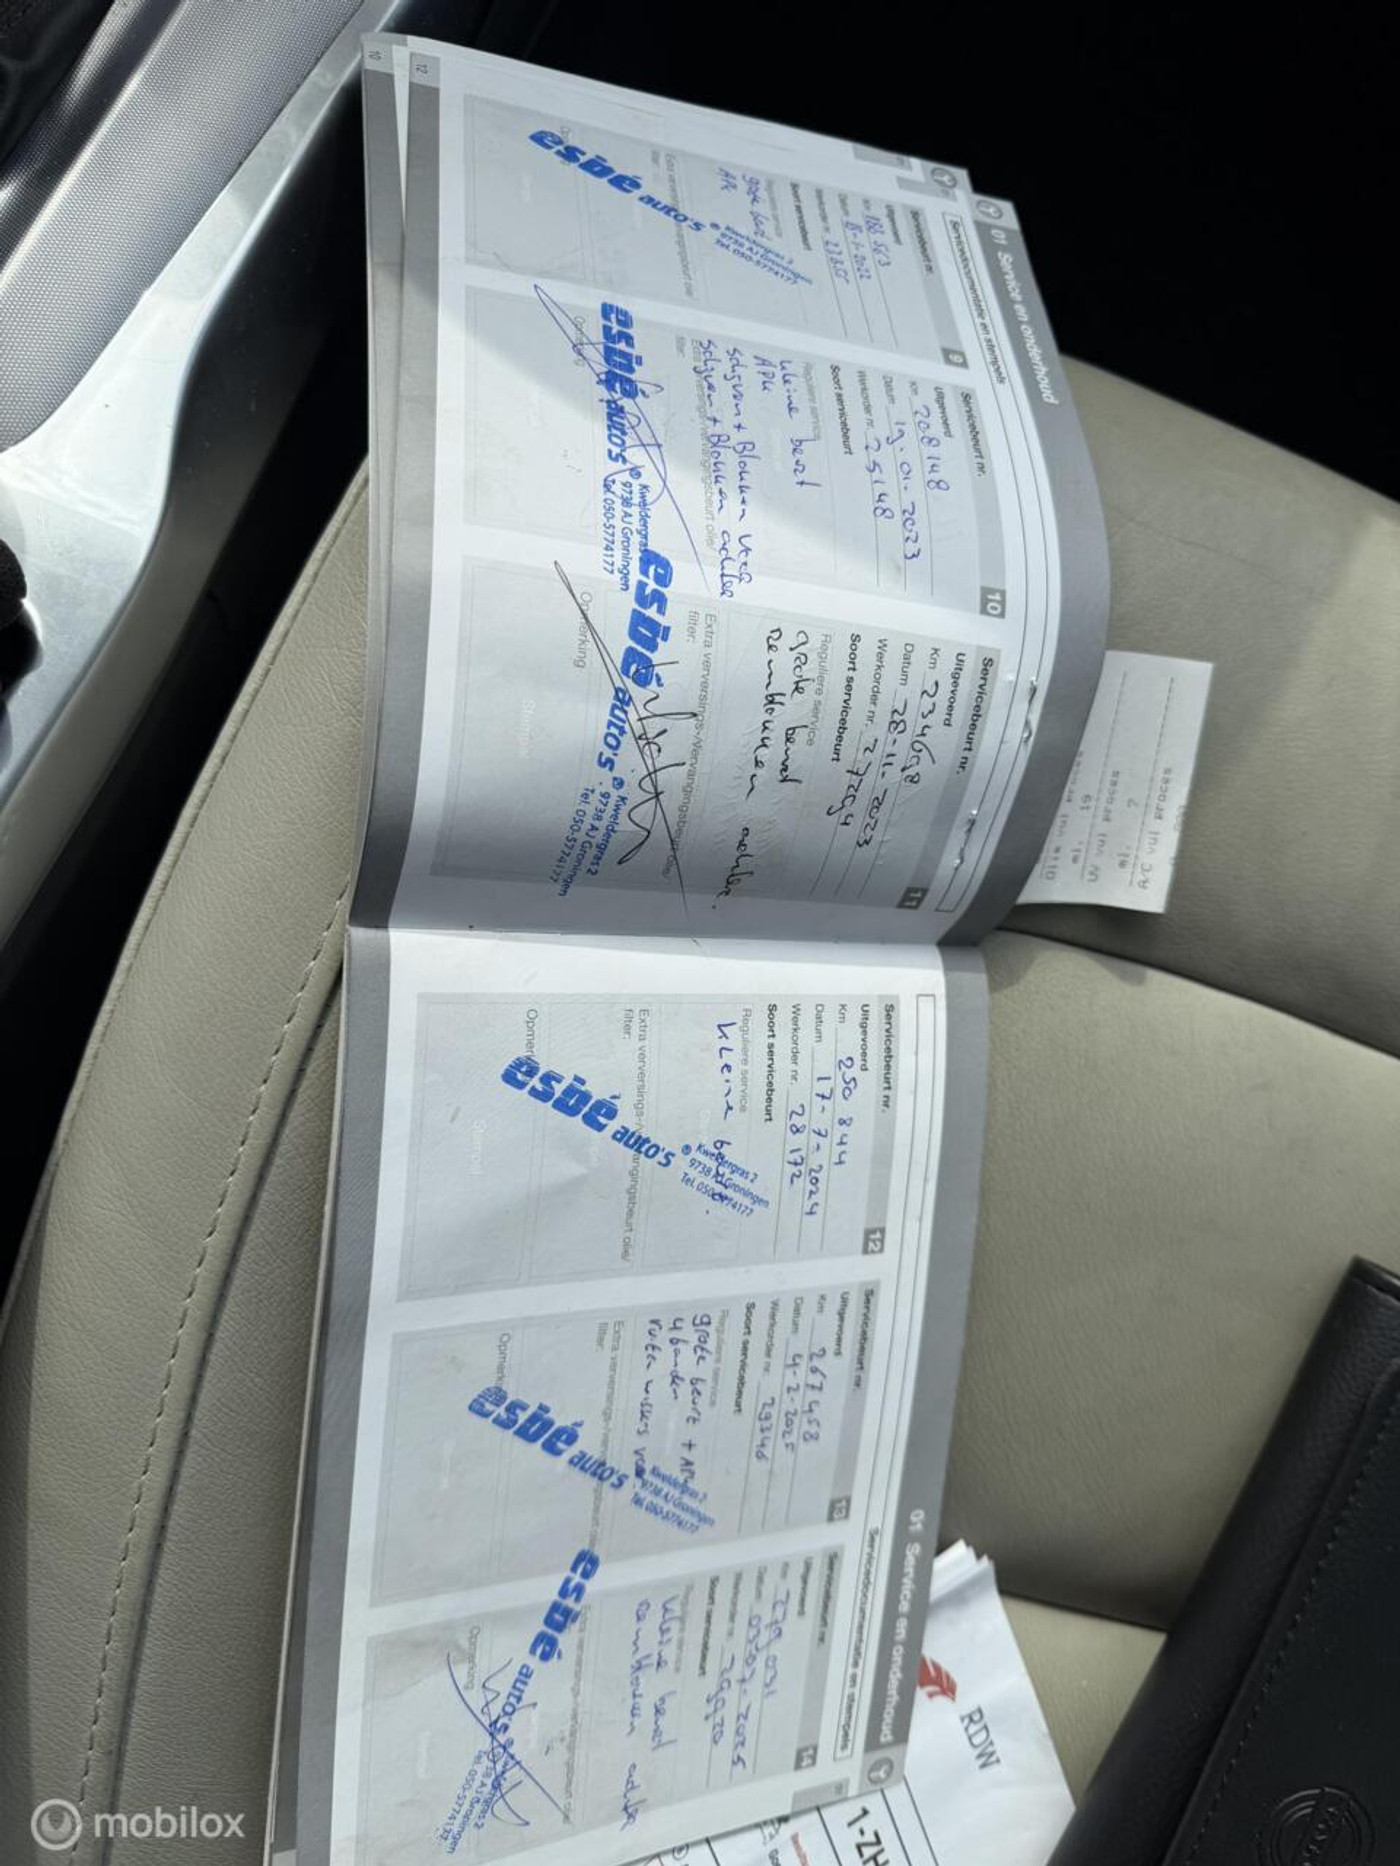 10
12
01 Service en onderhoud
Servicedocumentatie en stempels
Servicebeurt nr.
9
Uitgevoerd
Km 188 563
Datum
Werkorder nr.
Soort servicebeurt
Reguliere service
grote beurt
APK
esbé auto's
Kweldergras 2
9738 AJ Groningen
Tel. 050-5774177
Servicebeurt nr.
10
Uitgevoerd
Km 208148
Datum 19-01-2023
Werkorder nr. 25148
Soort servicebeurt
Reguliere service
kleine beurt
APK
Schijven + Blokken voor
Schijven + Blokken achter
Extra verversings-/vervangingsbeurt olie/
filter:
Opmerking
esbé auto's
Kweldergras
9738 AJ Groningen
Tel. 050-5774177
Servicebeurt nr.
11
Uitgevoerd
Km 234698
Datum 28-11-2023
Werkorder nr. 27294
Soort servicebeurt
Reguliere service
grote beurt
Remblokken achter.
Extra verversings-/vervangingsbeurt olie/
filter:
Opmerking
Stempel
esbé auto's
Kweldergras 2
9738 AJ Groningen
Tel. 050-5774177
Servicebeurt nr.
12
Uitgevoerd
Km 250 844
Datum 17-7-2024
Werkorder nr. 28172
Soort servicebeurt
Reguliere service
kleine beurt.
Extra verversings-/vervangingsbeurt olie/
filter:
Opmerk
Stempel
esbé auto's
Kweldergras 2
9738 AJ Groningen
Tel. 050-5774177
01 Service en onderhoud
Servicedocumentatie en stempels
Servicebeurt nr.
13
Uitgevoerd
Km 267458
Datum 4-2-2025
Werkorder nr. 29346
Soort servicebeurt
Reguliere service
grote beurt + APK
4 banden
ruiten wissers voor
Extra verversings-
filter:
Opmerk
esbé auto's
Kweldergras 2
9738 AJ Groningen
Tel. 050-5774177
Servicebeurt nr.
14
Uitgevoerd
Km 279031
Datum 03-07-2025
Werkorder nr. 29920
Soort servicebeurt
kleine beurt
Remblokken achter
Opmerking
esbé auto's
RDW
1-ZH
mobilox